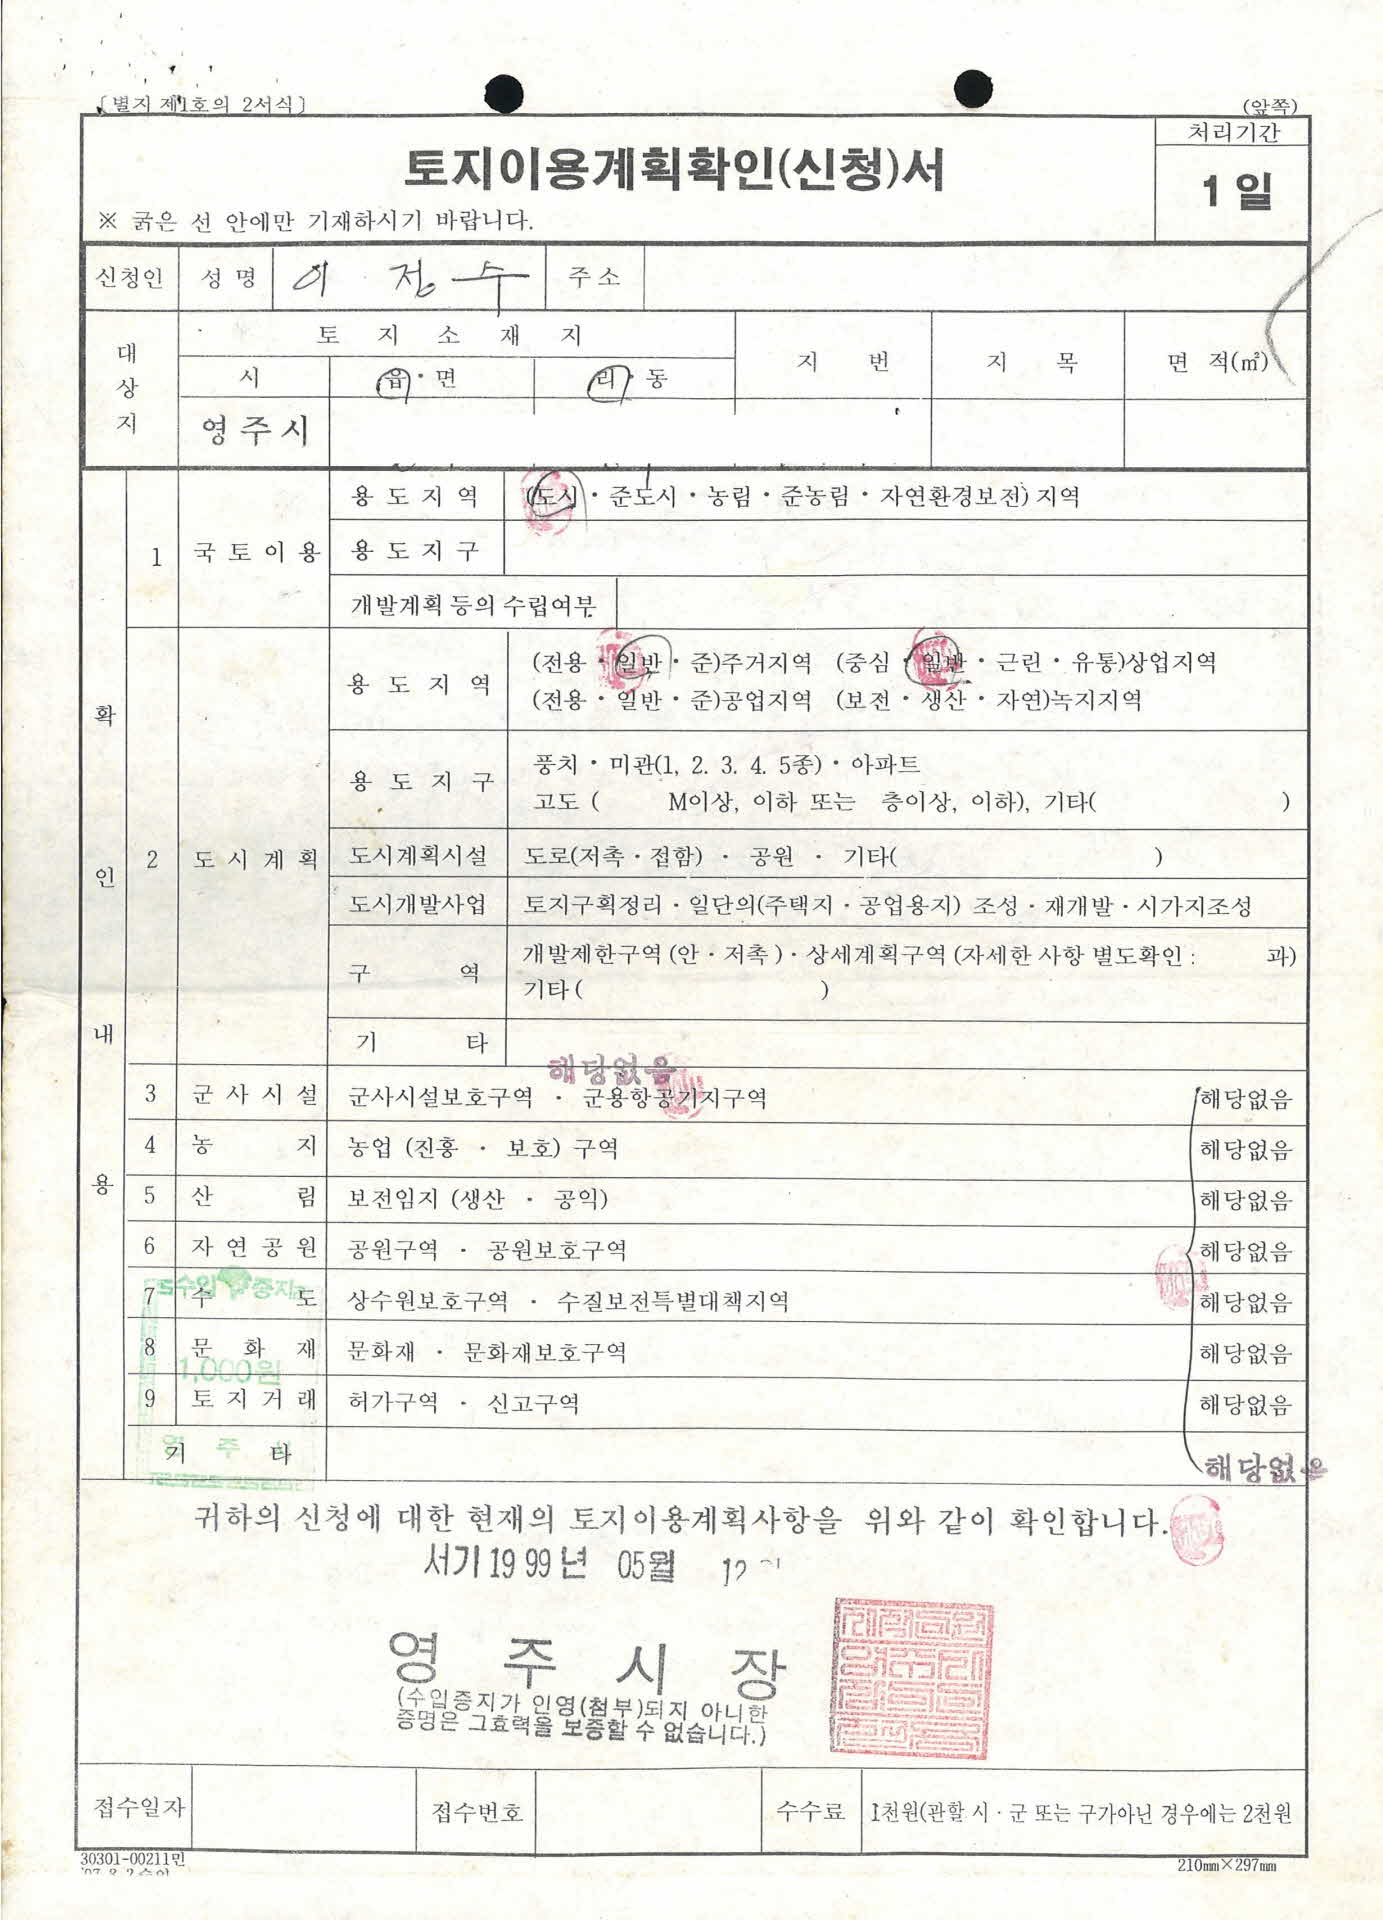 [별지 제1호의 2서식]
(앞쪽)
토지이용계획확인(신청)서
처리기간
1일
※ 굵은 선 안에만 기재하시기 바랍니다.
신청인 성명 이정수 주소
대상지 토지소재지 지번 지목 면적(㎡)
시 읍·면 리·동
영주시
확인내용
1 국토이용 용도지역 (도시·준도시·농림·준농림·자연환경보전)지역
용도지구
개발계획 등의 수립여부
2 도시계획 용도지역 (전용·일반·준)주거지역 (중심·일반·근린·유통)상업지역
(전용·일반·준)공업지역 (보전·생산·자연)녹지지역
용도지구 풍치·미관(1, 2. 3. 4. 5종)·아파트
고도 ( M이상, 이하 또는 층이상, 이하), 기타( )
도시계획시설 도로(저촉·접함) · 공원 · 기타( )
도시개발사업 토지구획정리·일단의(주택지·공업용지) 조성·재개발·시가지조성
구역 개발제한구역 (안·저촉)·상세계획구역 (자세한 사항 별도확인 : 과)
기타 ( )
기타
해당없음
3 군사시설 군사시설보호구역 · 군용항공기지구역 해당없음
4 농지 농업 (진흥 · 보호) 구역 해당없음
5 산림 보전임지 (생산 · 공익) 해당없음
6 자연공원 공원구역 · 공원보호구역 해당없음
수입증지
7 수도 상수원보호구역 · 수질보전특별대책지역 해당없음
8 문화재 문화재 · 문화재보호구역 해당없음
1,000원
9 토지거래 허가구역 · 신고구역 해당없음
영주시
기타 해당없음
귀하의 신청에 대한 현재의 토지이용계획사항을 위와 같이 확인합니다.
서기 1999년 05월 12
영주시장
(수입증지가 인영(첨부)되지 아니한
증명은 그효력을 보증할 수 없습니다.)
접수일자 접수번호 수수료 1천원(관할 시·군 또는 구가아닌 경우에는 2천원
30301-00211민
210㎜×297㎜